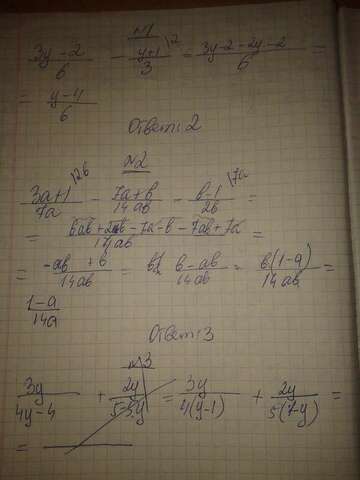 №1
3y-2/6 - y+1/3 \2 = 3y-2-2y-2/6 =
= y-4/6
Ответ: 2
№2
3a+1/7a \2b - 7a+b/14ab - b-1/2b \7a =
= 6ab+2b-7a-b-7ab+7a/14ab =
= -ab+b/14ab = b-ab/14ab = b(1-a)/14ab =
1-a/14a
Ответ: 3
№3
3y/4y-4 + 2y/5-5y = 3y/4(y-1) + 2y/5(1-y) =
=